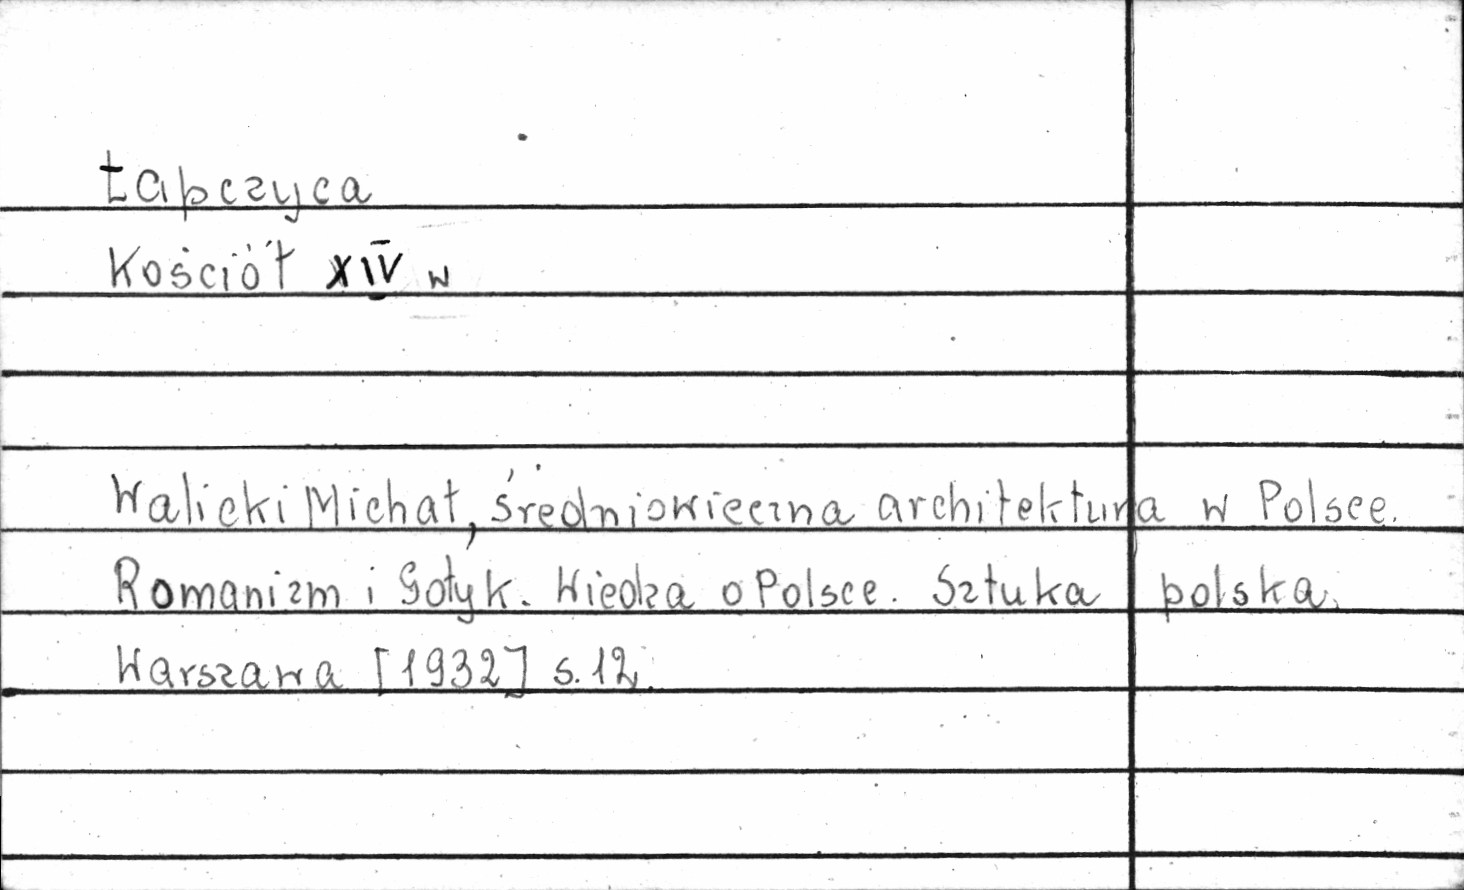 Łapczyca
Kościół XIV w
Walicki Michał, Średniowieczna architektura w Polsce.
Romanizm i Gotyk. Wiedza o Polsce. Sztuka polska.
Warszawa [1932] s. 12.